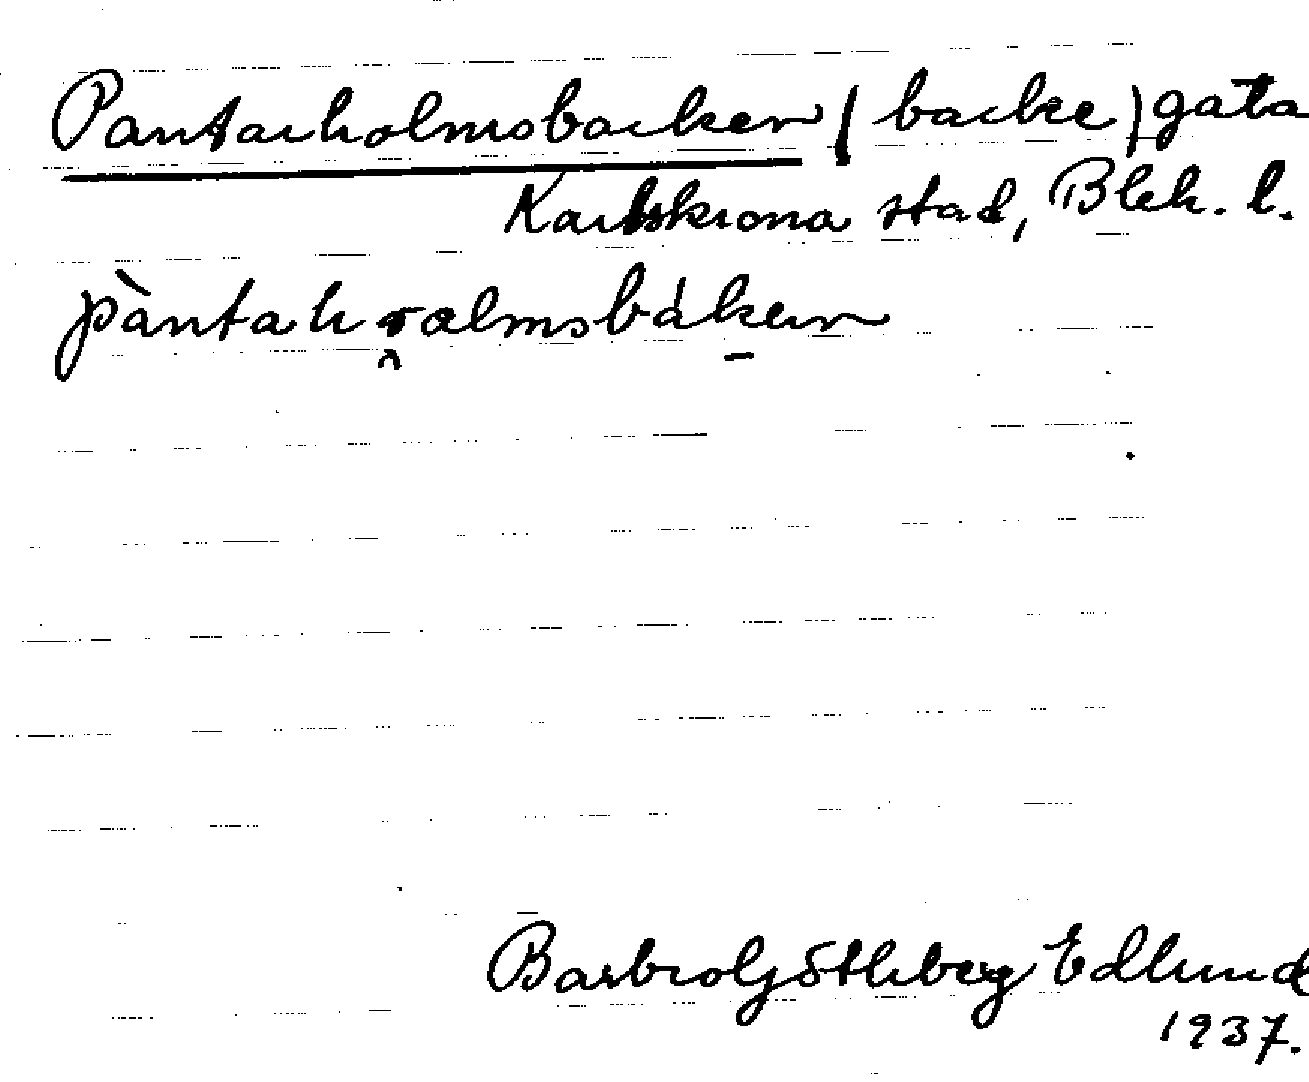 Pantarholmsbacken (backe) gata
Karlskrona stad, Blek. l.
pàntahɷlmsbákən
Barbro Göthberg Edlund
1937.